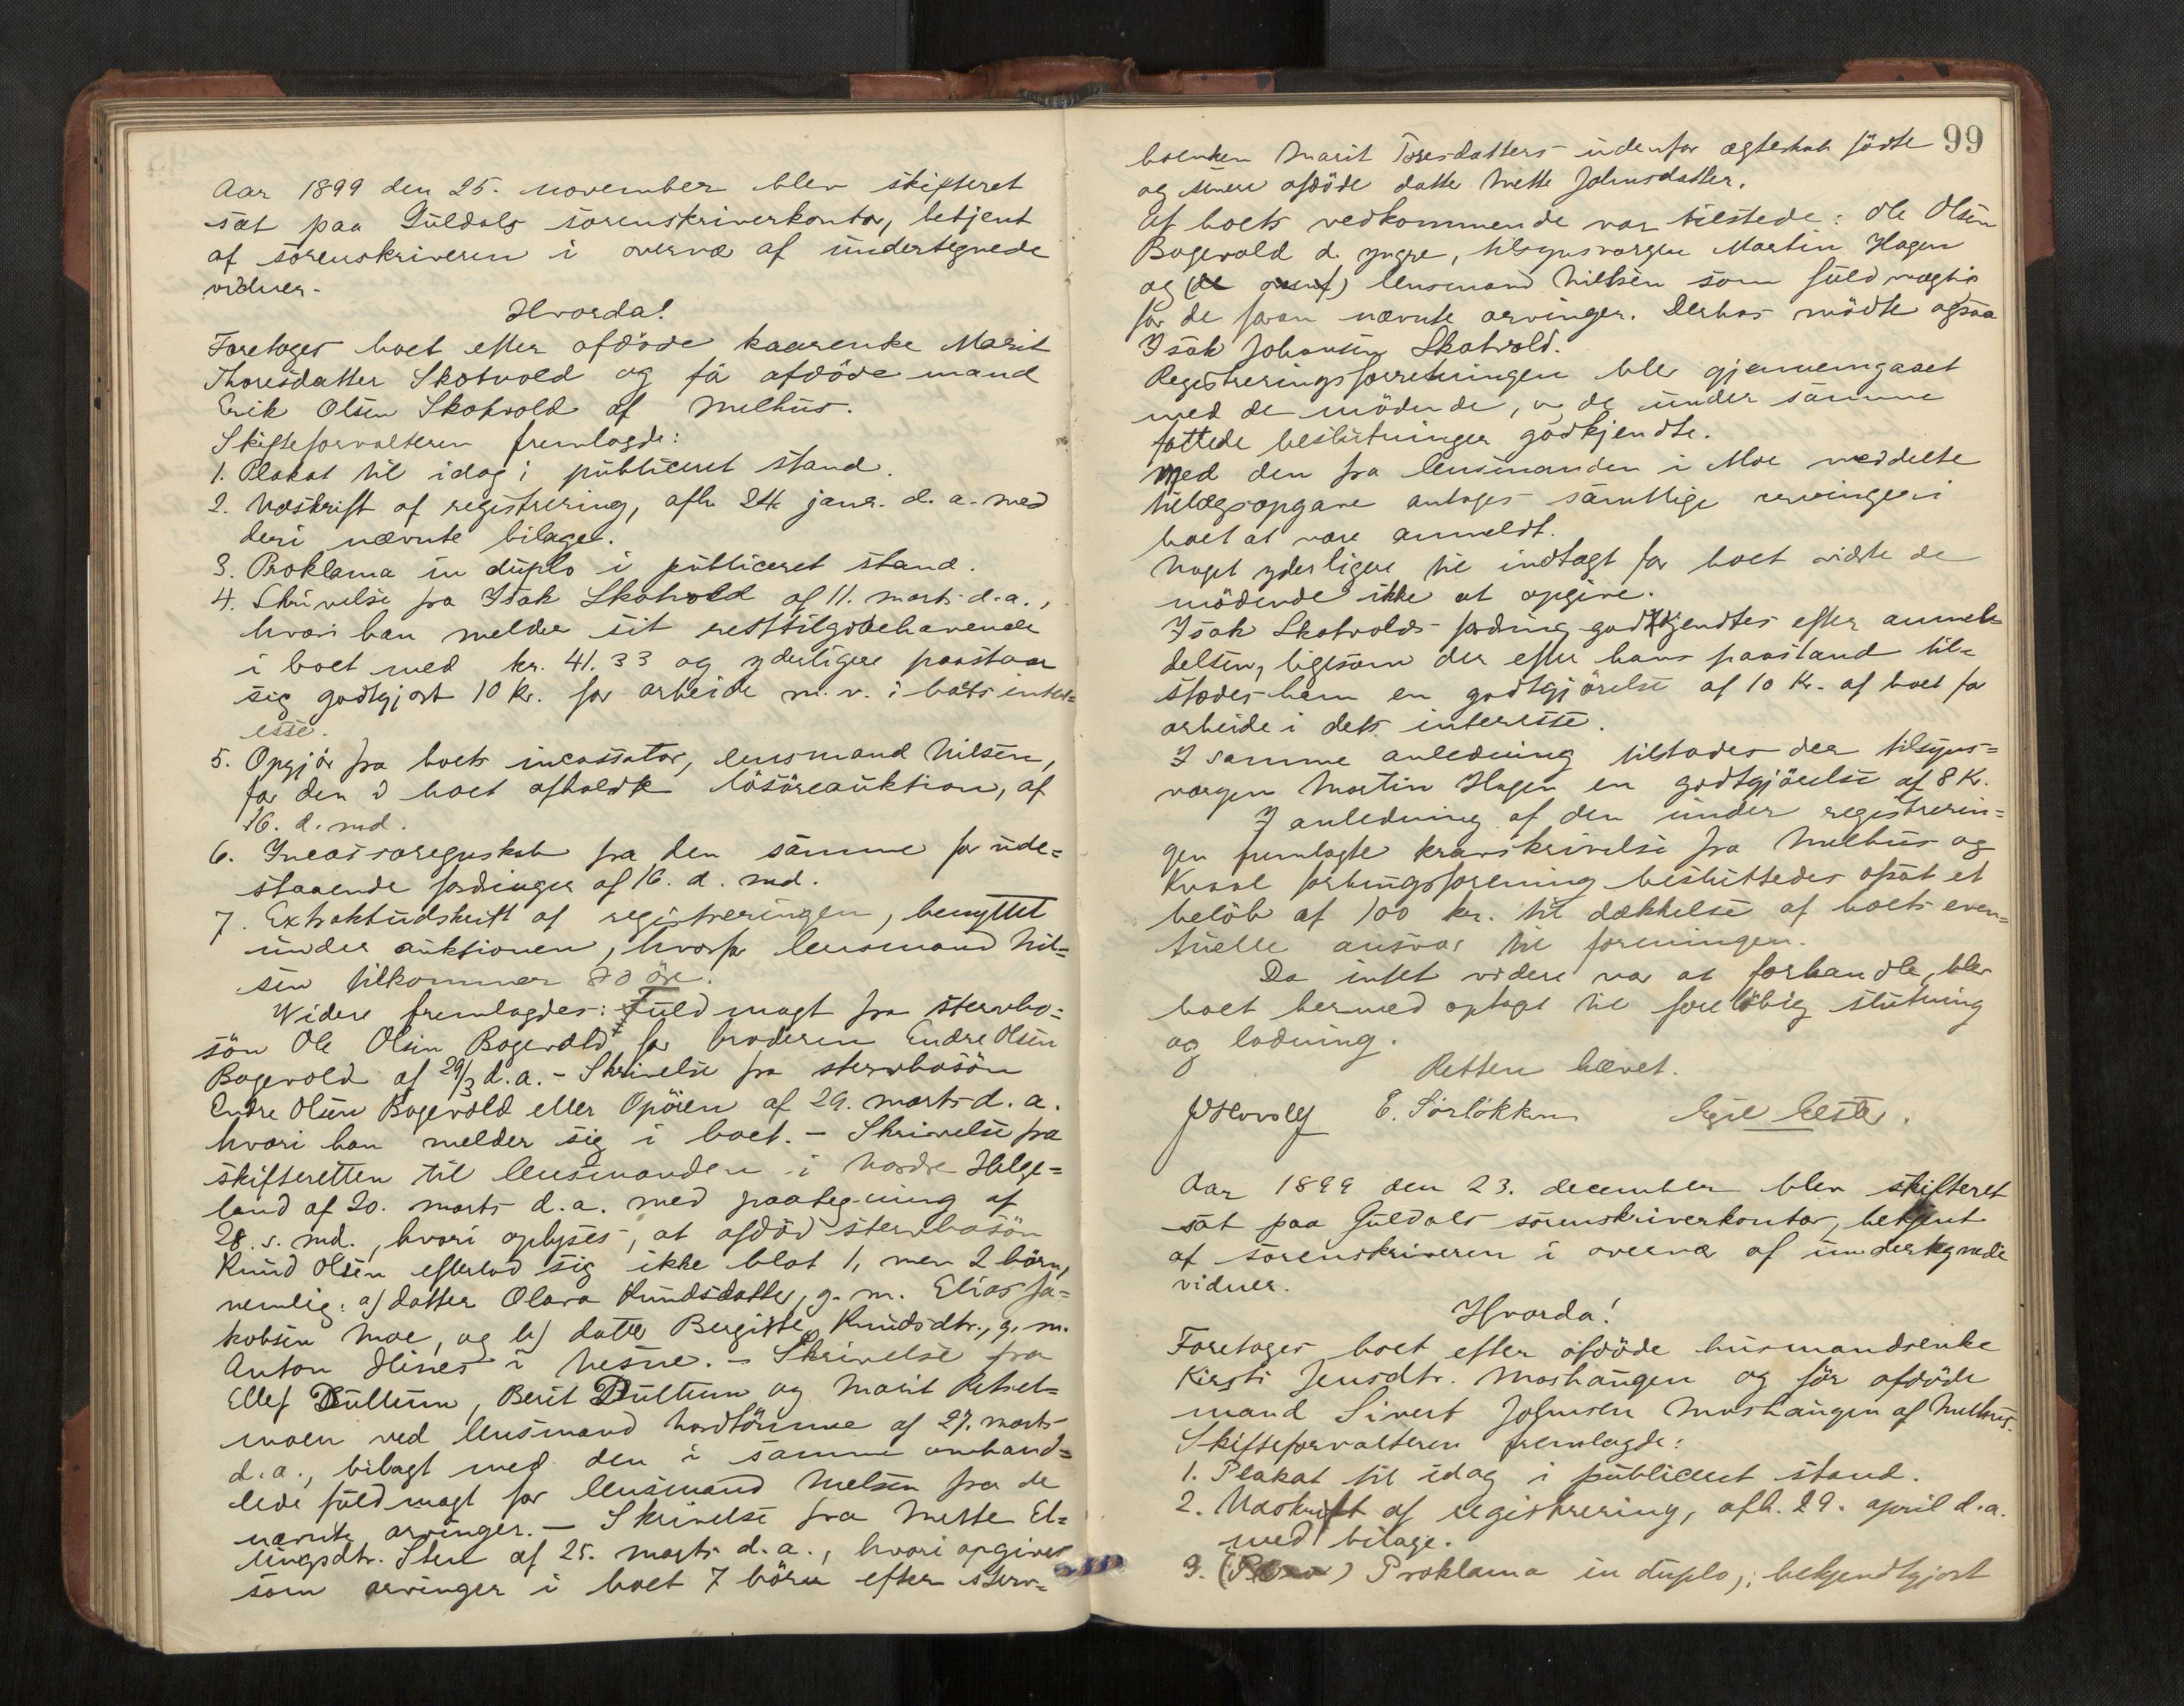 Aar 1899 den 25. november blev skifteret
sat paa Guldals sorenskriverkontor, betjent
af sorenskriveren i overvær af undertegnede
vidner.
Hvorda!
Foretoges boet efter afdöde kaarenke Marit
Thoresdatter Skotvold og før afdöde mand
Erik Olsen Skotvold af Melhus.
Skifteforvalteren fremlagde:
1. Plakat til idag i publiceret stand.
2. Udskrift af registrering, afh. 24 janr. d. a. med
deri nævnte bilager.
3. Proklama in duplo i publiceret stand.
4. Skrivelse fra Isak Skotvold af 11. marts d. a.,
hvori han melder sit resttilgodehavende
i boet med kr. 41.33 og yderligere paastaar
sig godtgjort 10 kr. for arbeide m. v. i boets inter=
esse.
5. Opgjör fra boets incassator, lensmand Nilsen,
for den i boet afholdte lösöreauktion, af
16. d. md.
6. Incassoregnskab fra den samme for ude=
staaende fordringer af 16. d. md.
7. Extraktudskrift af registreringen, benyttet
under auktionen, hvorfor lensmand Nil=
sen tilkommer 80 öre.
Videre fremlagdes: Fuldmagt fra stervbo=
sön Ole Olsen Bogevold for broderen Endre Olsen
Bogevold af 29/3 d. a. – Skrivelse fra stervbosön
Endre Olsen Bogevold eller Opören af 29. marts d. a.
hvori han melder sig i boet. – Skrivelse fra
skifteretten til lensmanden i Nordre Helge=
land af 20. marts d. a. med paategning af
28. s. md., hvori oplyses, at afdöd stervbosön
Knud Olsen efterlod sig ikke blot 1, men 2 börn,
nemlig: a) datter Olava Knudsdatter, g. m. Elias Ja=
kobsen Moe, og b) datter Bergitte Knudsdtr., g. m.
Anton Hines i Nesne. – Skrivelse fra
Ellef Dullum, Berit Dullum og Marit
moen ved lensmand af 27. marts
d. a., bilagt med den i samme omhand=
lede fuldmagt for lensmand Nielsen fra de
nævnte arvinger. – Skrivelse fra Mette El=
lingsdtr. Sten af 25. marts d. a., hvori opgives
som arvinger i boet 7 börn efter sterv=
99
boenken Marit Toresdatters udenfor ægteskab födte
og senere afdöde datter Mette Johnsdatter.
Af boets vedkommende var tilstede: Ole Olsen
Bogevold d. yngre, tilsynsvergen Martin Hagen
og lensmand Nilsen som fuldmægtig
for de foran nævnte arvinger. Derhos mödte ogsaa
Isak Johansen Skotvold.
Registreringsforretningen blev gjennemgaaet
med de mödende, og de under samme
fattede beslutninger godkjendte.
Med den fra lensmanden i Moe meddelte
tillægsopgave antages samtlige arvinger i
boet at være anmeldt.
Noget yderligere til indtægt for boet vidste de
mödende ikke at opgive.
Isak Skotvolds fordring godkjendtes efter anmel=
delsen, ligesom der efter hans paastand til=
stodes ham en godtgjörelse af 10 Kr. af boet for
arbeide i dets interesse.
I samme anledning tilstodes der tilsyns=
vergen Martin Hagen en godtgjörelse af 8 Kr.
I anledning af den under registrerin=
gen fremlagte kravskrivelse fra Melhus og
Kvaal forbrugsforening besluttedes afsat et
belöb af 100 kr. til dækkelse af boets even=
tuelle ansvar til foreningen.
Da intet videre var at forhandle, blev
boet hermed optaget til forelöbig slutning
og lodning.
Retten hævet.
E. Sörlökken
Aar 1899 den 23. december blev skifteret
sat paa Guldals sorenskriverkontor, betjent
af sorenskriveren i overvær af undertegnede
vidner.
Hvorda!
Foretoges boet efter afdöde husmandsenke
Kirsti Jensdtr. Moshaugen og för afdöde
mand Sivert Johnsen Moshaugen af Melhus.
Skifteforvalteren fremlagde:
1. Plakat til idag i publiceret stand.
2. Udskrift af registrering, afh. 29. april d. a.
med bilage.
3. Proklama in duplo, bekjendtgjort